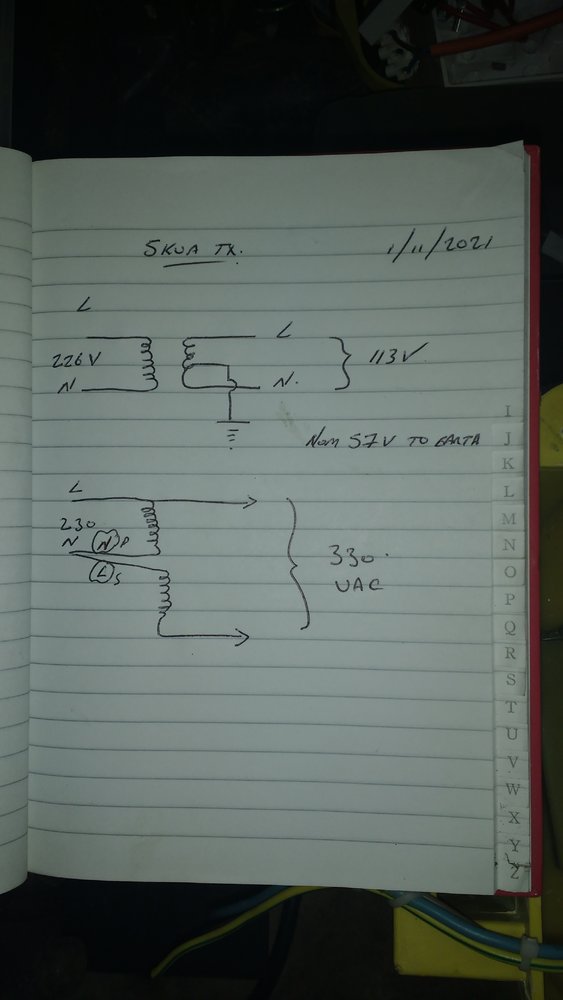 SKUA TX. 1/11/2021
L
226V L
N N. 113V
Nom 57V TO EARTH
L
230
N N P 330.
L S VAC
I
J
K
L
M
N
O
P
Q
R
S
T
U
V
W
X
Y
Z